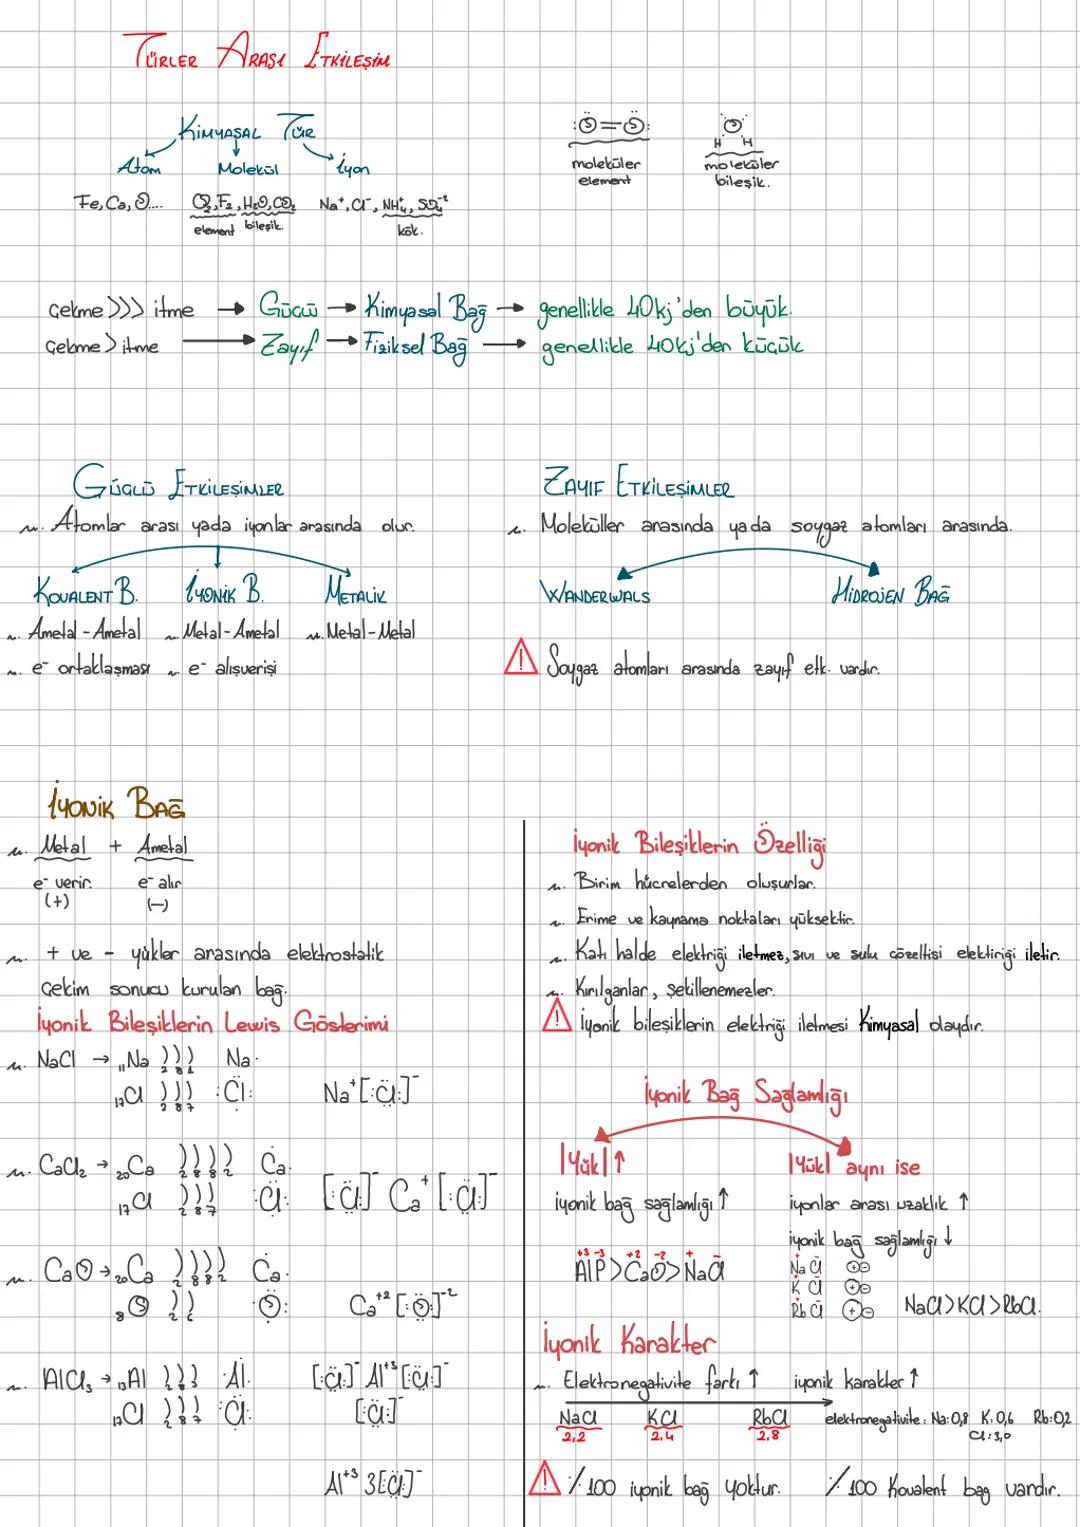 TÜRLER ARASI ETKİLEŞİM
KİMYASAL TÜR
Atom Molekül İyon
Fe, Ca, O.... O₂, F₂, H₂O, CO₂ Na⁺, Cl⁻, NH₄⁺, SO₄⁻²
element bileşik. kök.
:Ö=Ö:
moleküler element
O
H H
moleküler bileşik.
çekme >>> itme → Güçlü → Kimyasal Bağ → genellikle 40kj'den büyük.
çekme > itme → Zayıf → Fiziksel Bağ → genellikle 40kj'den küçük
GÜÇLÜ ETKİLEŞİMLER
Atomlar arası yada iyonlar arasında olur.
KOVALENT B. İYONİK B. METALİK
Ametal - Ametal Metal - Ametal Metal - Metal
e⁻ ortaklaşması e⁻ alışverişi
ZAYIF ETKİLEŞİMLER
Moleküller arasında yada soygaz atomları arasında.
WANDERWALS HİDROJEN BAĞ
Soygaz atomları arasında zayıf etk. vardır.
İYONİK BAĞ
Metal + Ametal
e⁻ verir. e⁻ alır
(+) (-)
+ ve - yükler arasında elektrostatik
çekim sonucu kurulan bağ.
İyonik Bileşiklerin Lewis Gösterimi
NaCl → ₁₁Na ))) 2 8 1 Na·
₁₇Cl ))) 2 8 7 :Cl: Na⁺[:Cl:]⁻
CaCl₂ → ₂₀Ca )))) 2 8 8 2 Ca·
₁₇Cl ))) 2 8 7 :Cl· [:Cl:]⁻ Ca⁺ [:Cl:]⁻
CaO → ₂₀Ca )))) 2 8 8 2 Ca·
₈O )) 2 6 ·O: Ca⁺² [:O:]⁻²
AlCl₃ → ₁₃Al ))) ·Al· [:Cl:]⁻ Al⁺³ [:Cl:]⁻
₁₇Cl ))) 2 8 7 :Cl· [:Cl:]⁻
Al⁺³ 3[:Cl:]⁻
İyonik Bileşiklerin Özelliği
Birim hücrelerden oluşurlar.
Erime ve kaynama noktaları yüksektir.
Katı halde elektriği iletmez, sıvı ve sulu çözeltisi elektiriği iletir.
Kırılganlar, şekillenemezler.
İyonik bileşiklerin elektriği iletmesi Kimyasal olaydır.
İyonik Bağ Sağlamlığı
|Yük| ↑ |Yük| aynı ise
iyonik bağ sağlamlığı ↑
iyonlar arası uzaklık ↑
iyonik bağ sağlamlığı ↓
+3 -3 +2 -2 + -
AlP > CaO > NaCl
Na Cl + -
K Cl + -
Rb Cl + - NaCl > KCl > RbCl.
İyonik Karakter
Elektronegativite farkı ↑ iyonik karakter ↑
NaCl KCl RbCl elektronegativite: Na:0,8 K:0,6 Rb:0,2
2,2 2,4 2,8 Cl:3,0
% 100 iyonik bağ yoktur. % 100 Kovalent bağ vardır.